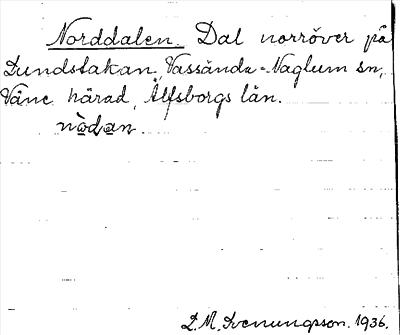 Norddalen. Dal norröver på
Dundstakan, Vassända-Naglum sn,
Väne härad, Älfsborgs län.
nò̤da̤n.
D. M. Svenungsson. 1936.